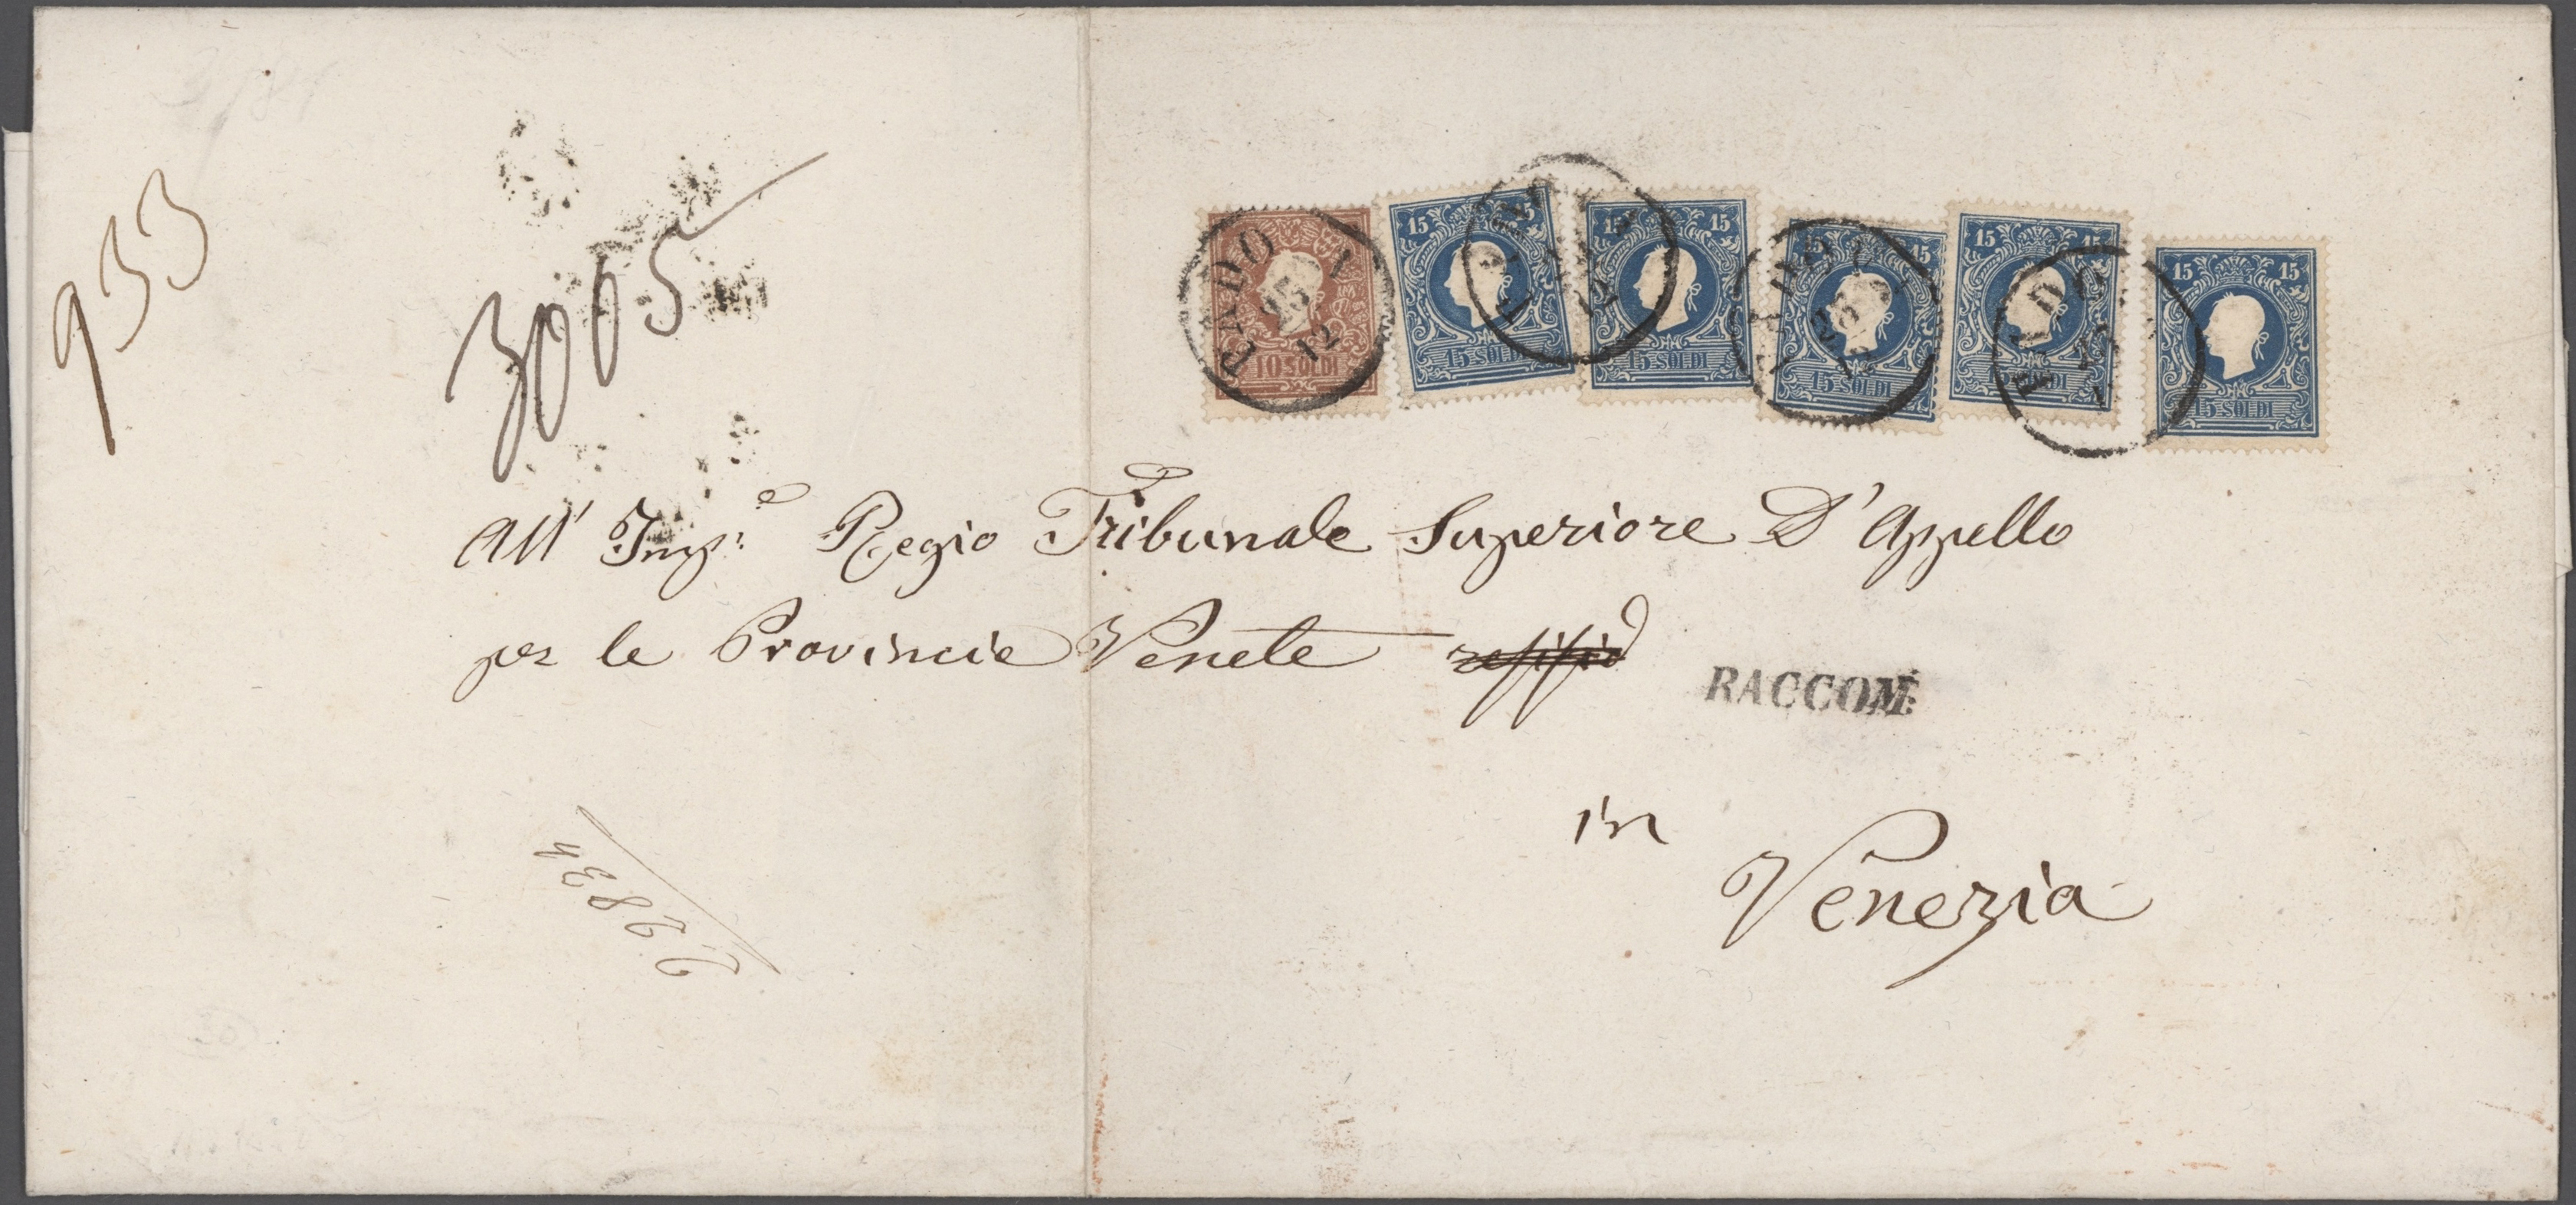 933
3065
PADOVA
25
12
10 SOLDI
15 15
15 SOLDI
15 15
15 SOLDI
15 15
15 SOLDI
15 15
15 SOLDI
15 15
15 SOLDI
All' Imp:e Regio Tribunale Superiore D'Appello
per le Provincie Venete
RACCOM:
in
Venezia